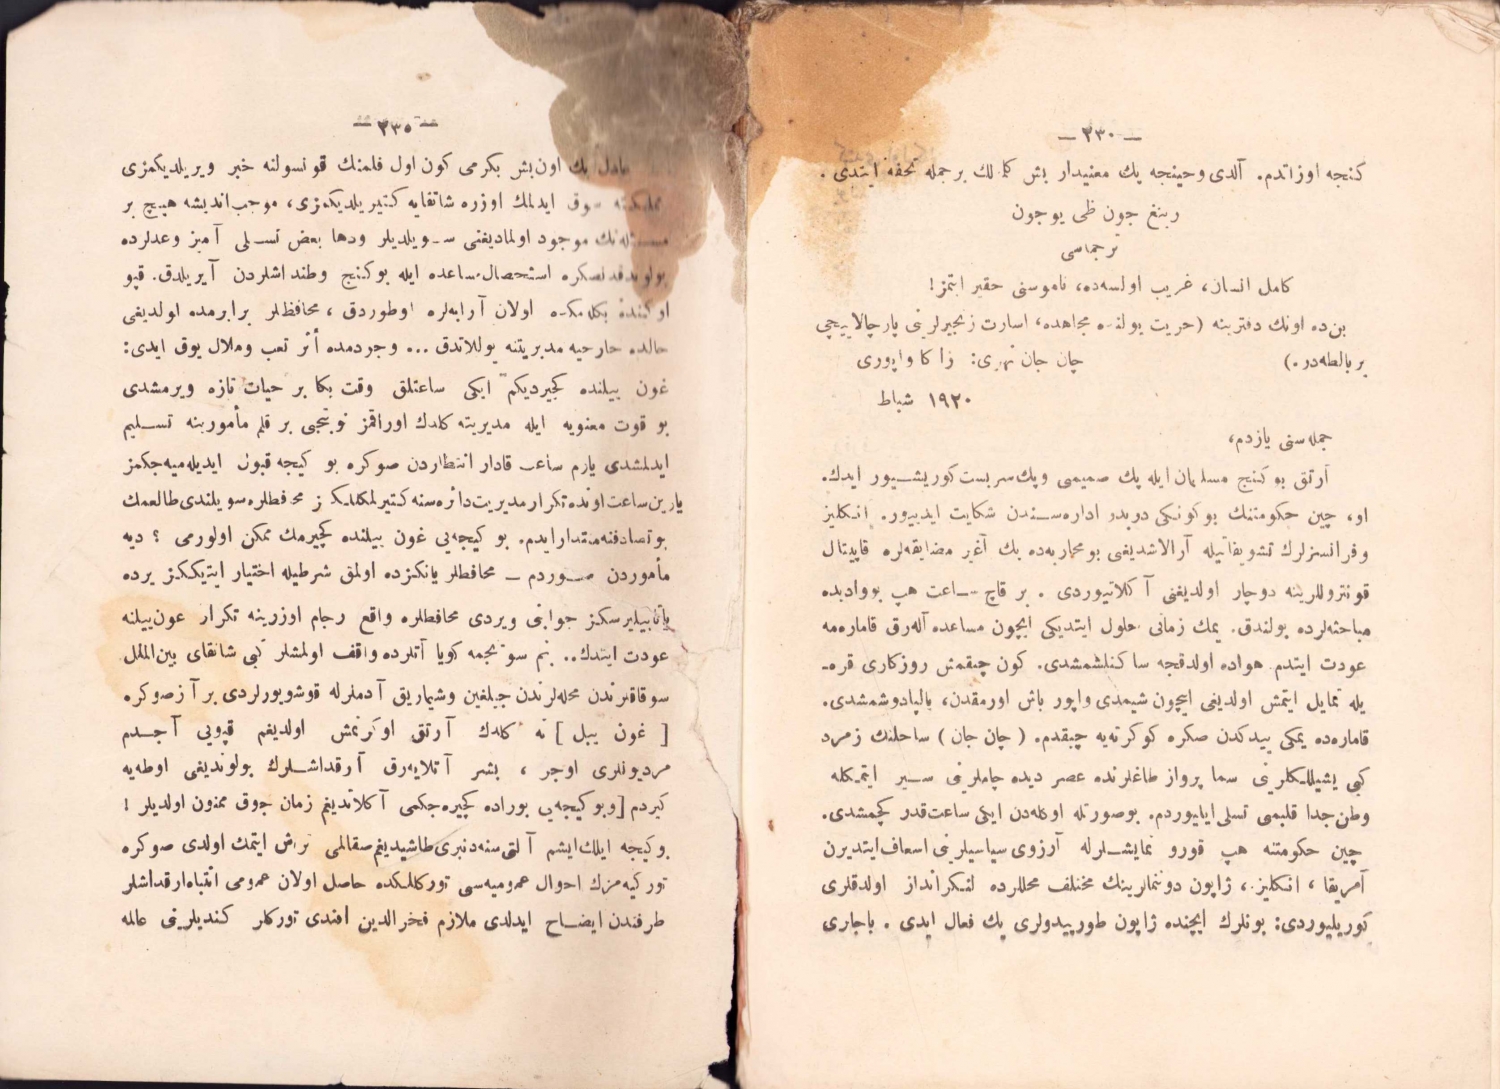 — ٢٣٠ —
كنجه اوزاتدم. آلدى وچينجه پك معنيدار بش كلمه‌لك بر جمله تحفه ايتدى.
رينغ جون ظى يوجون
ترجمه‌سى
كامل انسان، غريب اولسه‌ده، ناموسنى حقير ايتمز!
بن‌ده اونك دفترينه (حريت يولنده مجاهده، اسارت زنجيرلرينى پارچالاييجى
بر بالطه‌در.) چان جان نهرى: زاكا واپورى
١٩٢٠ شباط
جمله‌سنى يازدم،
آرتق بو كنج مسلمان ايله پك صميمى وپك سربست كوريشيور ايدك.
او، چين حكومتنك بوكونكى دوبدر اداره‌سندن شكايت ايديور. انكليز
وفرانسزلرك تشويقاتيله آرالاشديغى بو محاربه‌ده پك آغير مضايقه‌لره قاپيتال
قونتروللرينه دوچار اولديغنى آكلاتيوردى. بر قاچ ساعت هپ بووادیده
مباحثه‌لرده بولندق. يمك زمانى حلول ايتديكى ايچون مساعده آله‌رق قاماره‌مه
عودت ايتدم. هواده اولدقجه ساكنلشمشدى. كون چيقمش روزكارى قره‌
يله تمايل ايتمش اولديغى ايچون شيمدى واپور باش اورمقدن، يالپادوشمشدى.
قاماره‌ده يمكى ييدكدن صكره كوكرته‌يه چيقدم. (چان جان) ساحلنك زمرد
كبى يشيللكلرينى سما پرواز طاغلرنده عصر ديده چاملرينى سير ايتمكله
وطن‌جدا قلبيمى تسلى ايليوردم. بوصورتله اوكله‌دن ايكى ساعت‌قدر كچمشدى.
چين حكومتنه هپ قورو نمايشلرله آرزوى سياسيلرينى اسعاف ايتديرن
آمريقا، انكليز، ژاپون دونمالرينك مختلف محللرده لنكرانداز اولدقلرى
كوريليوردى: بونلرك ايچنده ژاپون طورپيدولرى پك فعال ايدى. باجارى
— ٢٣٥ —
عادل بك اون‌بش يكرمى كون اول فلمنك قونسولنه خبر ويريلديكمزى
مملكته سوق ايدلمك اوزره شانغايه كتيريلديكمزى، موجب‌انديشه هيچ بر
مسئله‌نك موجود اولماديغنى سويلديلر ودها بعض تسلى آميز وعدلرده
بولوندقدنصكره استحصال‌مساعده ايله بوكنج وطنداشلردن آيريلدق. قپو
اوكنده بكلمكده اولان آرابه‌لره اوطوردق، محافظلر برابرمده اولديغى
حالده خارجيه مديريتنه يوللاندق... وجودمده أثر تعب وملال يوق ايدى:
غون بيلنده كچيرديكم ايكى ساعتلق وقت بكا بر حيات تازه ويرمشدى
بو قوت معنويه ايله مديريته كلدك اوراقمز نوبتجى بر قلم مأمورينه تسليم
ايدلمشدى يارم ساعت قادار انتظاردن صوكره بو كيجه قبول ايديله‌ميه‌جكمز
يارين‌ساعت اونده‌تكرار مديريت‌دائره‌سنه كتيرلمكلكمز محافظلره سويلندى طالعمك
بوتصادفنه‌منتدارايدم. بو كيجه‌يى غون بيلنده كچيرمك ممكن اولورمى؟ ديه
مأموردن صوردم — محافظلر يانكزده اولمق شرطيله اختيار ايتيككز يرده
ياتابيليرسكز جوابنى ويردى محافظلره واقع رجام اوزرينه تكرار غون‌بيلنه
عودت ايتدك.. بم سونجمه كويا آتلرده واقف اولمشلر كبى شانغاى بين‌الملل
سوقاقلرندن محله‌لرندن چيلغين وشيماريق آدملرله قوشويورلردى بر آز صوكره
[غون بيل] نه كلدك آرتق اوكرنمش اولديغم قپويى آچدم
مرديونلرى اوچر، بشر آتلايه‌رق آرقداشلرك بولونديغى اوطه‌يه
كيردم [وبوكيجه‌يى بوراده كچيره‌جكمى آكلاتديغم زمان چوق ممنون اولديلر!
بوكيجه ايلك‌ايشم آلتى سنه‌دنبرى‌طاشيديغم‌صقالمى تراش ايتمك اولدى صوكره
توركيه‌مزك احوال عموميه‌سى توركلكده حاصل اولان عمومى انتباه‌ارقداشلر
طرفندن ايضاح ايدلدى ملازم فخرالدين افندى توركلر كنديلرينى عالمه